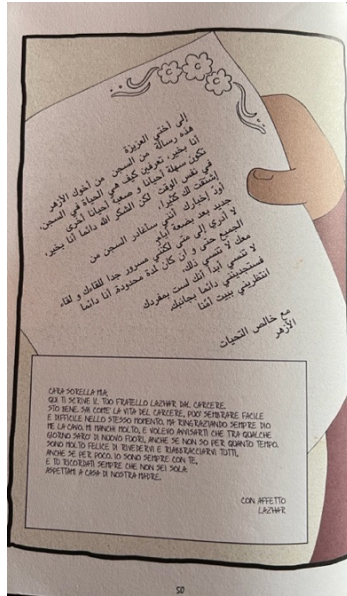 إلى أختي العزيزة
هذه رسالة من السجن من أخوك الأزهر
أنا بخير، تعرفين كيف هي الحياة في السجن،
تكون سهلة أحيانا و صعبة أحيانا أخرى
في نفس الوقت. لكن الشكر الله دائما أنا بخير،
إشتقت لك كثيرا،
أودّ إخبارك أنني سأغادر السجن من
جديد بعد بضعة أيام
لا أدري إلى متى لكنني مسرور جدا للقاءك و لقاء
الجميع حتى و أن كان لمدة محدودة. أنا دائما
معك لا تنسي ذلك.
لا تنسي أبدا أنك لست بمفردك
فستجدينني دائما بجانبك.
انتظريني ببيت أمّنا
مع خالص التحيات
الأزهر
CARA SORELLA MIA,
QUI TI SCRIVE IL TUO FRATELLO LAZHAR DAL CARCERE.
STO BENE. SAI COM'È LA VITA DEL CARCERE, PUÒ SEMBRARE FACILE
E DIFFICILE NELLO STESSO MOMENTO, MA RINGRAZIANDO SEMPRE DIO
ME LA CAVO. MI MANCHI MOLTO, E VOLEVO AVVISARTI CHE TRA QUALCHE
GIORNO SARÒ DI NUOVO FUORI, ANCHE SE NON SO PER QUANTO TEMPO.
SONO MOLTO FELICE DI RIVEDERVI E RIABBRACCIARVI TUTTI,
ANCHE SE PER POCO. IO SONO SEMPRE CON TE,
E TU RICORDATI SEMPRE CHE NON SEI SOLA.
ASPETTAMI A CASA DI NOSTRA MADRE.
CON AFFETTO
LAZHAR
50